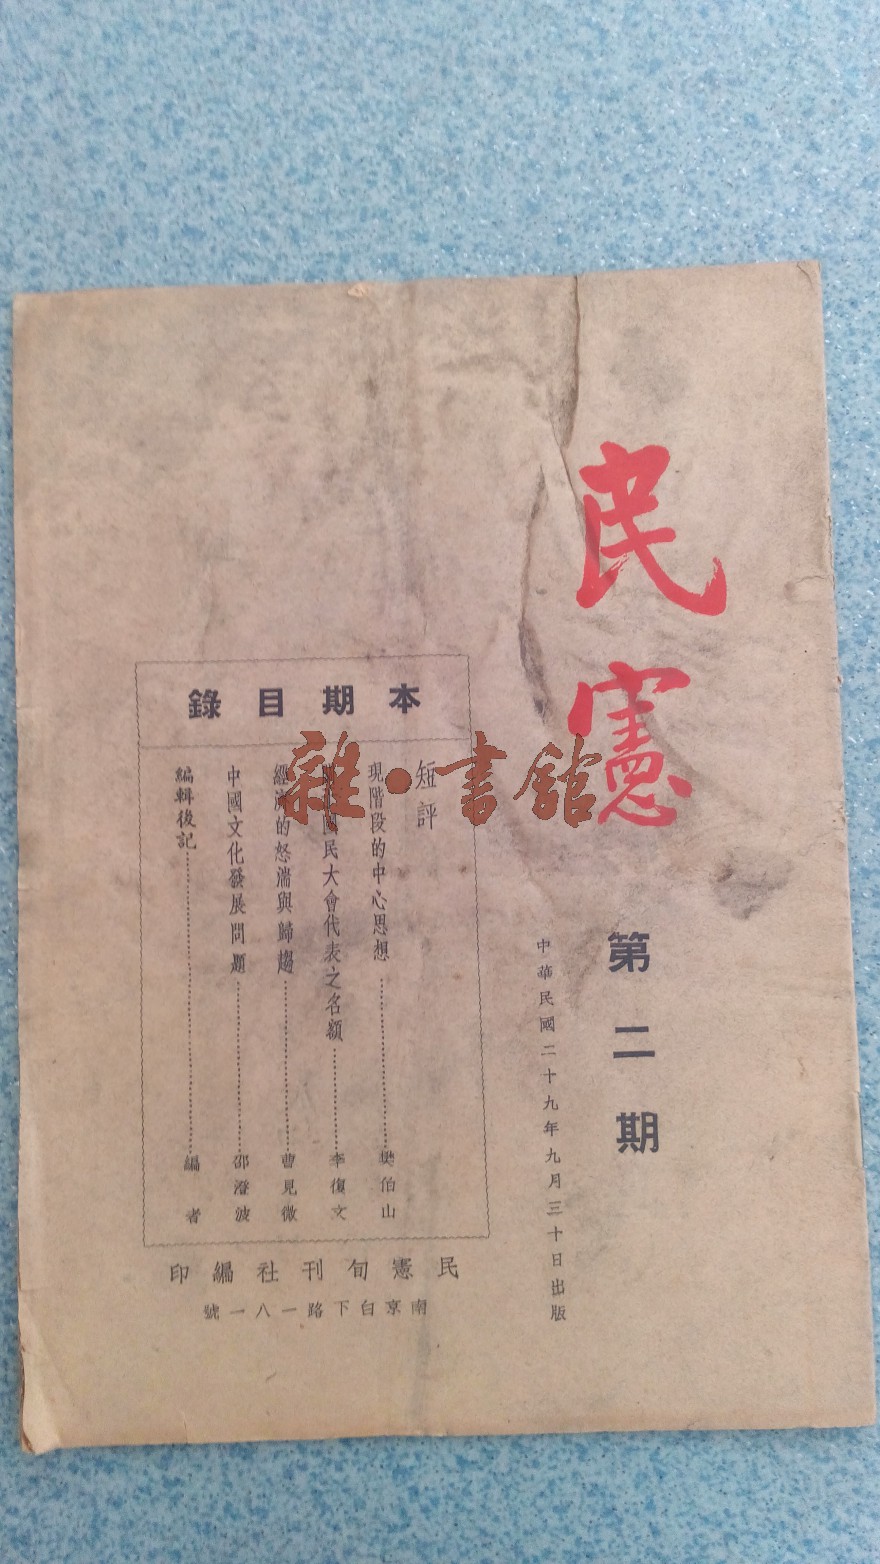 民憲
第二期
中華民國二十九年九月三十日出版
本期目錄
短評
現階段的中心思想……樊伯山
國民大會代表之名額……李復文
經濟的怒濤與歸趨……曹見微
中國文化發展問題……邵澄波
編輯後記……編者
民憲旬刊社編印
南京白下路一八一號
雜·書館